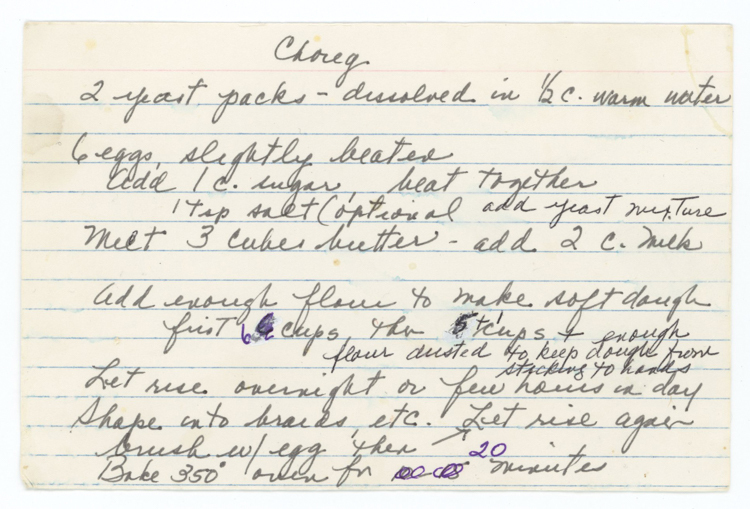 Choreg
2 yeast packs - dissolved in ½ c. warm water
6 eggs slightly beaten
add 1 c. sugar, beat together
1 tsp salt (optional add yeast mixture
Melt 3 cubes butter - add 2 c. milk
Add enough flour to make soft dough
first 6 cups then 5 cups + enough
flour dusted to keep dough from
sticking to hands
Let rise overnight or few hours in day
Shape into braids, etc. Let rise again
brush w/ egg then
Bake 350° oven for 20 minutes